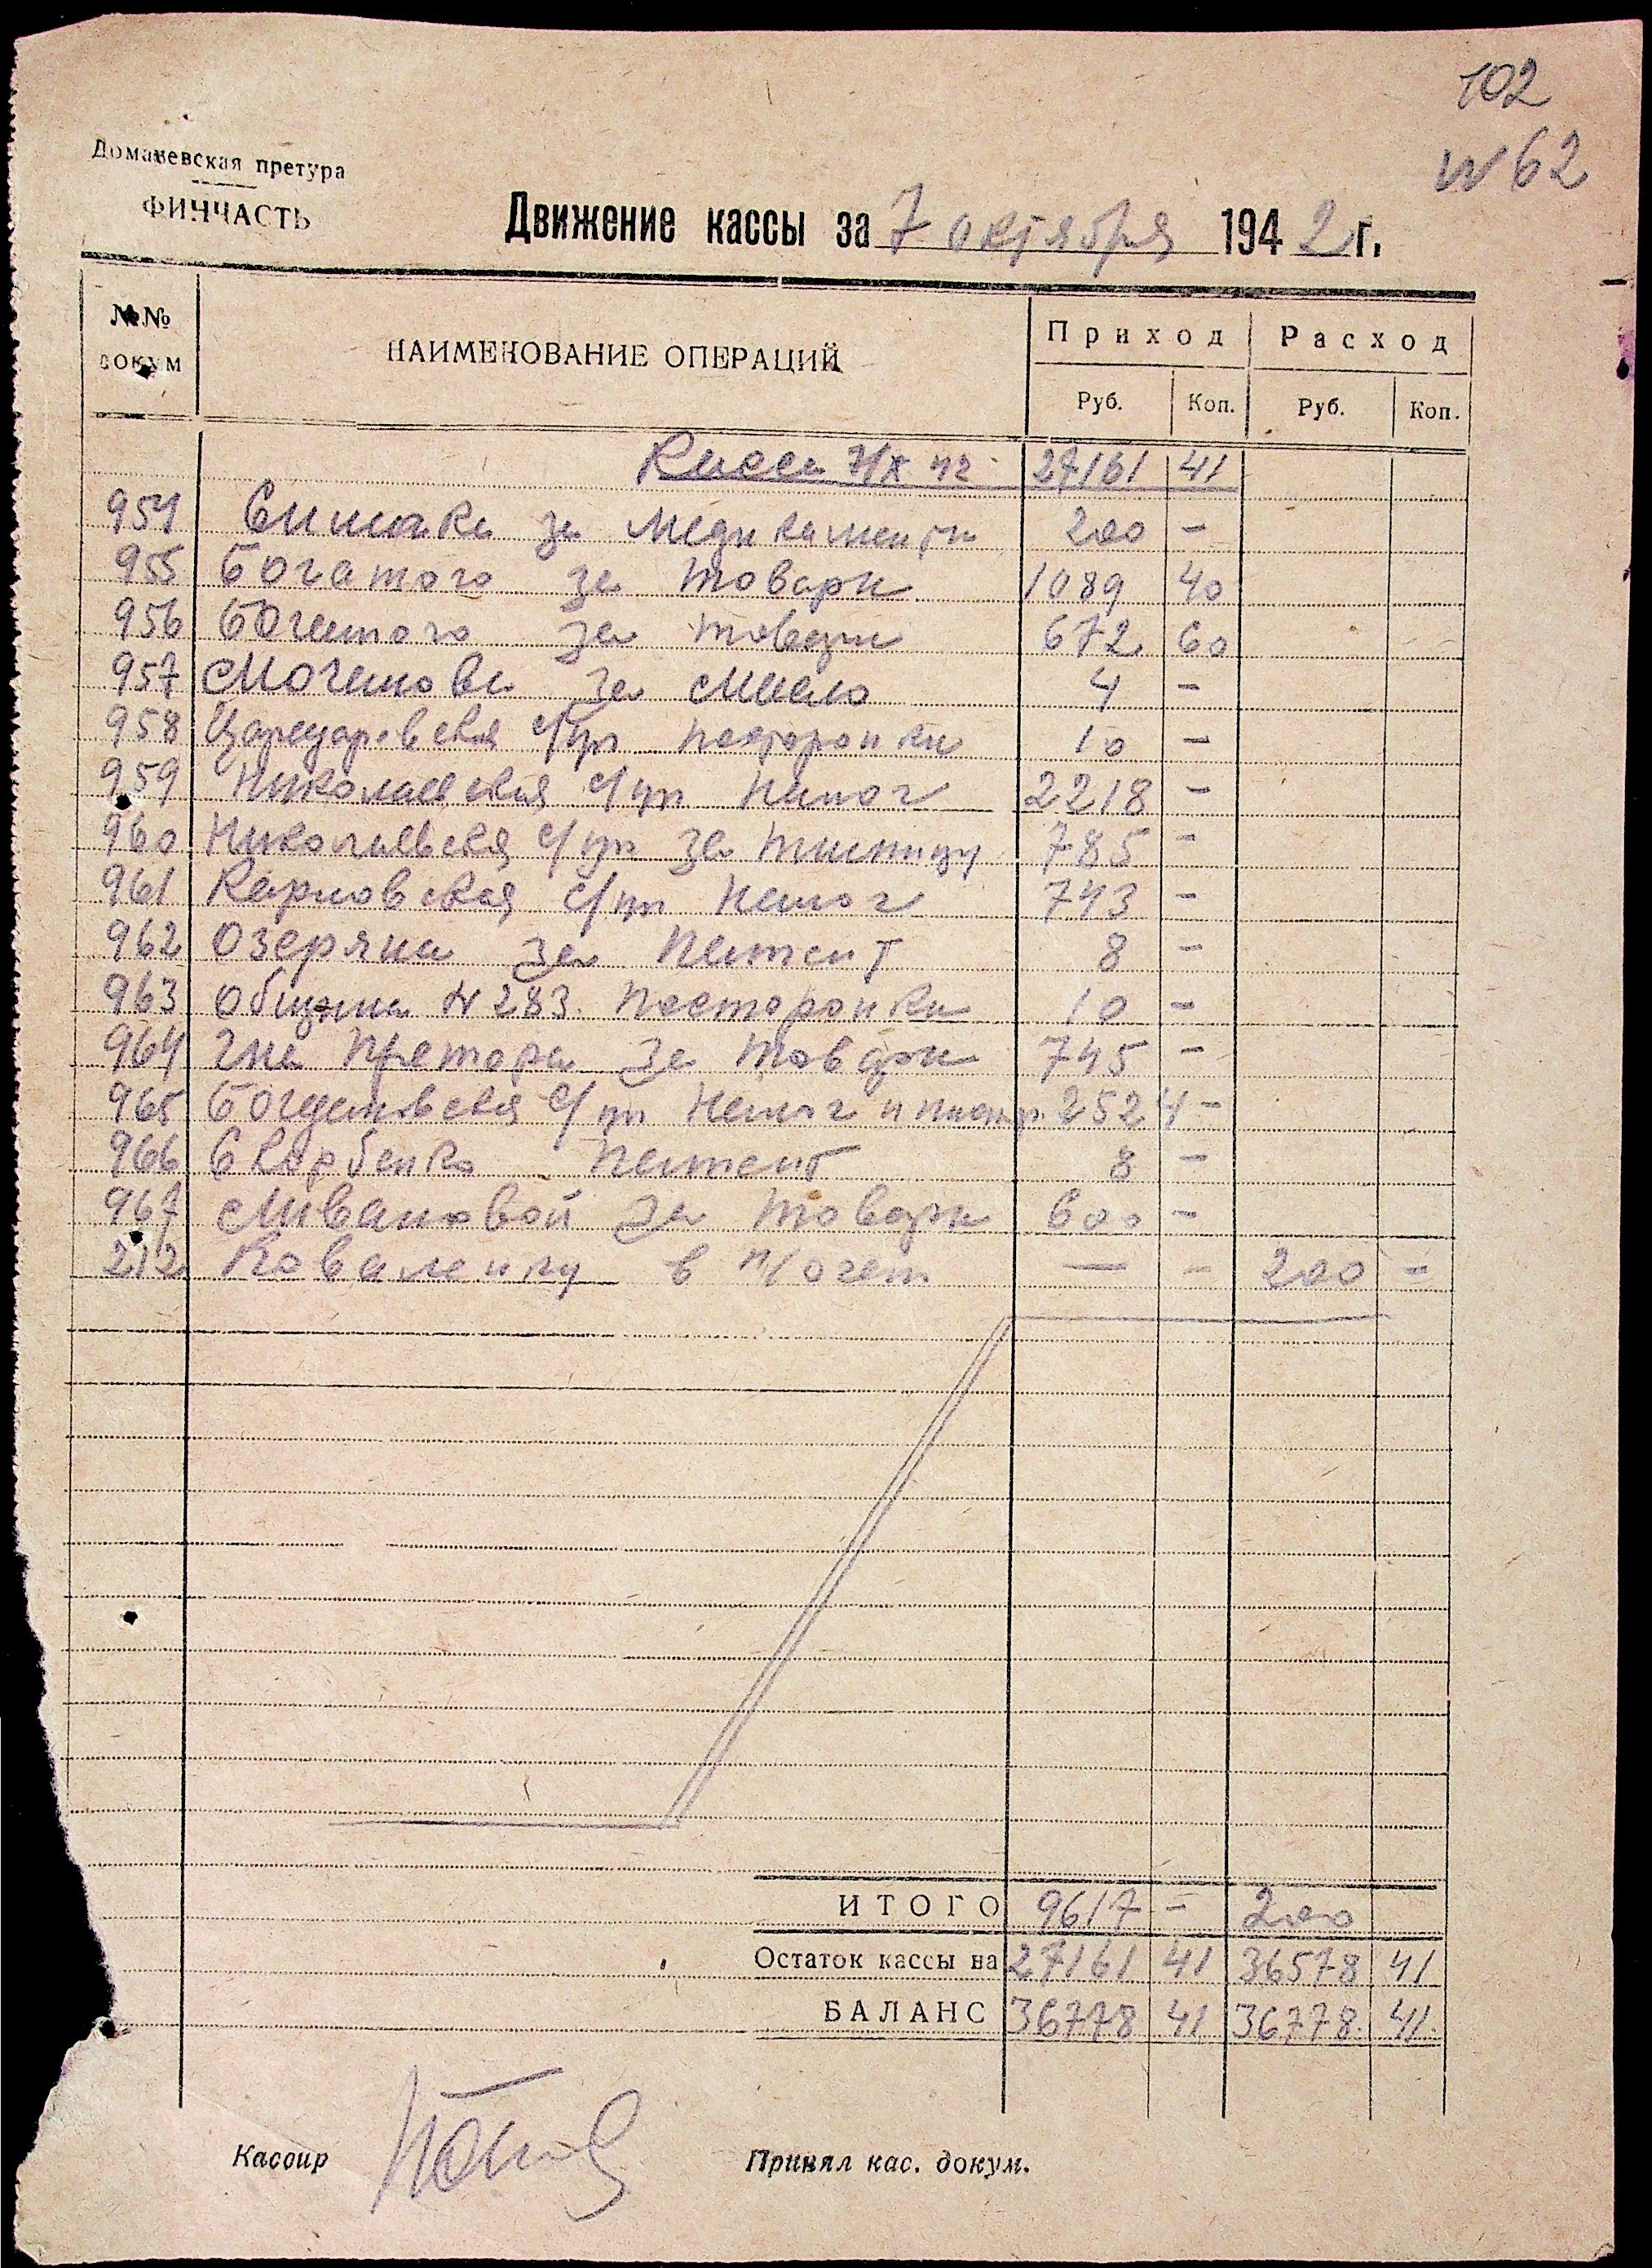 102
N 62
Домачевская претура
ФИНЧАСТЬ
Движение кассы за 7 октября 1942 г.
№№ докум НАИМЕНОВАНИЕ ОПЕРАЦИЙ Приход Расход
Руб. Коп. Руб. Коп.
Касса 7/X 42 27161 41
954 за Медикаменты 200 -
955 Богатого за товары 1089 40
956 Богатого за товары 672 60
957 за Масло 4 -
958 Царедаровская с/пр посторонки 10 -
959 Николаевская с/пр налог 2218 -
960 Николаевская с/пр за птицу 785 -
961 Карловская с/пр налог 743 -
962 Озеряна за Патент 8 -
963 Община N 283. посторонки 10 -
964 Гна Претора за товары 745 -
965 Богдановская с/пр налог и 2524 -
966 Скорбенко Патент 8 -
967 за товары 600 -
212 Коваленку в п/очет — - 200 -
ИТОГО 9617 - 200
Остаток кассы на 27161 41 36578 41
БАЛАНС 36778 41 36778. 41.
Кассир Принял кас. докум.